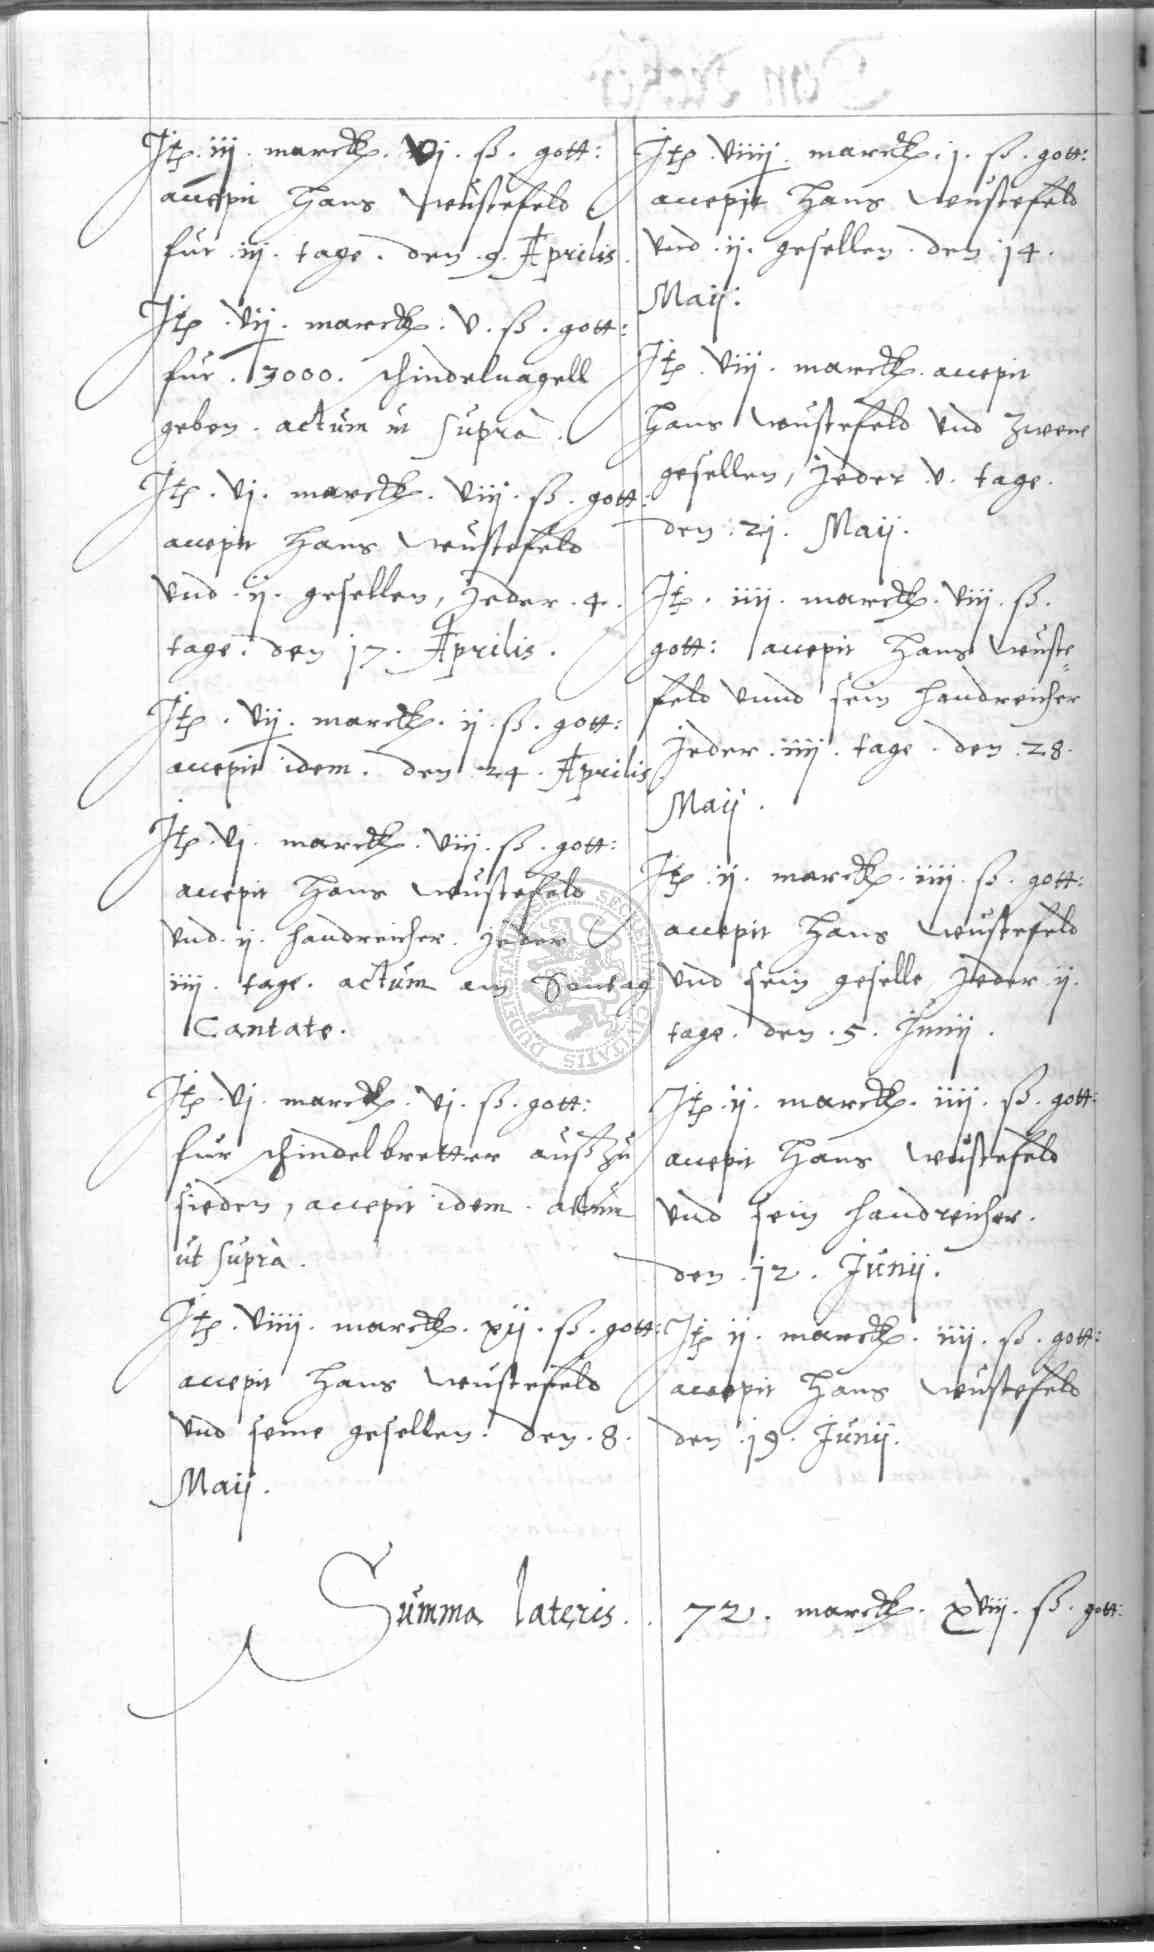 Jtem .iij. marck. vj. ß. gott:
accepit Hans Wustefeld
fur .iij. tage. den .9. Aprilis.
Jtem .vij. marck. v. ß. gott:
fur .3000. schindelnagell
geben. actum ut suprà.
Jtem .vj. marck. viij. ß. gott:
accepit Hans Wustefeld
vnd .ij. gesellen, Jeder .4.
tage. den 17. Aprilis.
Jtem .vij. marck. ij. ß. gott:
accepit idem. den 24. Aprilis
Jtem .vj. marck. viij. ß. gott:
accepit Hans Wustefeld
vnd .ij. handreicher. Jeder
iiij. tage. actum am Sontag
Cantate.
Jtem .vj. marck. vj. ß. gott:
fur schindelbretter auß zu
sieden, accepit idem. actum
ut suprà.
Jtem .viiij. marck. xij. ß. gott:
accepit Hans Wustefeld
vnd seine gesellen. den .8.
Maij.
Jtem .viiij. marck. j. ß. gott:
accepit Hans Wustefeld
vnd .ij. gesellen. den 14.
Maij:
Jtem .viij. marck. accepit
Hans Wustefeld vnd zwene
gesellen, Jeder .v. tage.
den .21. Maij.
Jtem .iiij. marck. viij. ß.
gott: accepit Hans Wuste=
feld vnnd sein handreicher
Jeder .iiij. tage. den .28.
Maij.
Jtem .ij. marck. iiij. ß. gott:
accepit Hans Wustefeld
vnd sein geselle Jeder ij.
tage. den .5. Junij.
Jtem .ij. marck. iiij. ß. gott:
accepit Hans Wustefeld
vnd sein handreicher.
den .12. Junij.
Jtem ij. marck. iiij. ß. gott:
accepit Hans Wustefeld
den .19. Junij.
Summa lateris . . 72. marck. xviij. ß. gott:
SECRETUM CIVITATIS DUDERSTADT